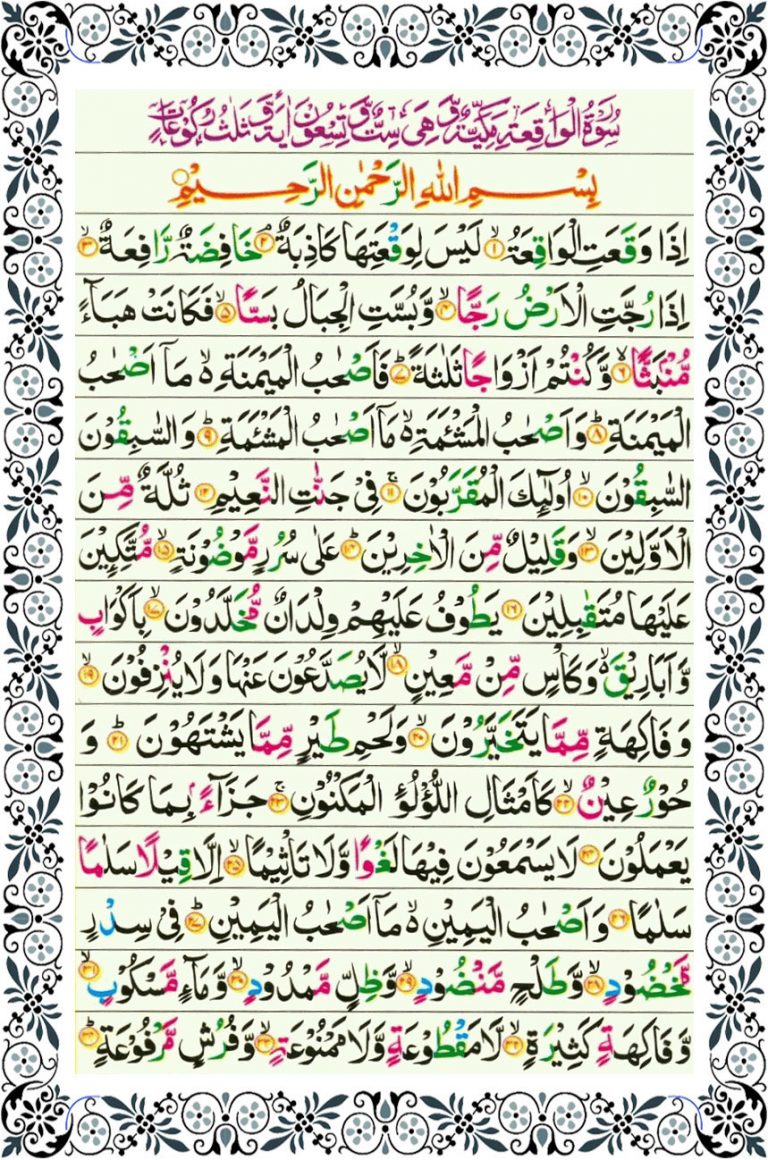 سُوْرَةُ الْوَاقِعَةِ مَكِّيَّةٌ وَّ هِىَ سِتٌّ وَّ تِسْعُوْنَ اٰيَةً وَّ ثَلٰثُ رُكُوْعَاتٍ
بِسْمِ اللهِ الرَّحْمٰنِ الرَّحِيْمِ
اِذَا وَقَعَتِ الْوَاقِعَةُ ۙ﴿۱﴾ لَيْسَ لِوَقْعَتِهَا كَاذِبَةٌ ۘ﴿۲﴾ خَافِضَةٌ رَّافِعَةٌ ۙ﴿۳﴾
اِذَا رُجَّتِ الْاَرْضُ رَجًّا ۙ﴿۴﴾ وَّ بُسَّتِ الْجِبَالُ بَسًّا ۙ﴿۵﴾ فَكَانَتْ هَبَآءً
مُّنْۢبَثًّا ۙ﴿۶﴾ وَّ كُنْتُمْ اَزْوَاجًا ثَلٰثَةً ؕ﴿۷﴾ فَاَصْحٰبُ الْمَيْمَنَةِ ۙ۬ مَاۤ اَصْحٰبُ
الْمَيْمَنَةِ ؕ﴿۸﴾ وَ اَصْحٰبُ الْمَشْـَٔمَةِ ۙ۬ مَاۤ اَصْحٰبُ الْمَشْـَٔمَةِ ؕ﴿۹﴾ وَ السّٰبِقُوْنَ
السّٰبِقُوْنَ ۙ﴿۱۰﴾ اُولٰٓئِكَ الْمُقَرَّبُوْنَ ۚ﴿۱۱﴾ فِىْ جَنّٰتِ النَّعِيْمِ ﴿۱۲﴾ ثُلَّةٌ مِّنَ
الْاَوَّلِيْنَ ۙ﴿۱۳﴾ وَ قَلِيْلٌ مِّنَ الْاٰخِرِيْنَ ؕ﴿۱۴﴾ عَلٰى سُرُرٍ مَّوْضُوْنَةٍ ۙ﴿۱۵﴾ مُّتَّكِـِٕيْنَ
عَلَيْهَا مُتَقٰبِلِيْنَ ﴿۱۶﴾ يَطُوْفُ عَلَيْهِمْ وِلْدَانٌ مُّخَلَّدُوْنَ ۙ﴿۱۷﴾ بِاَكْوَابٍ
وَّ اَبَارِيْقَ ۙ۬ وَ كَاْسٍ مِّنْ مَّعِيْنٍ ۙ﴿۱۸﴾ لَّا يُصَدَّعُوْنَ عَنْهَا وَ لَا يُنْزِفُوْنَ ۙ﴿۱۹﴾
وَ فَاكِهَةٍ مِّمَّا يَتَخَيَّرُوْنَ ۙ﴿۲۰﴾ وَ لَحْمِ طَيْرٍ مِّمَّا يَشْتَهُوْنَ ؕ﴿۲۱﴾ وَ
حُوْرٌ عِيْنٌ ۙ﴿۲۲﴾ كَاَمْثَالِ اللُّؤْلُؤِ الْمَكْنُوْنِ ۚ﴿۲۳﴾ جَزَآءًۢ بِمَا كَانُوْا
يَعْمَلُوْنَ ﴿۲۴﴾ لَا يَسْمَعُوْنَ فِيْهَا لَغْوًا وَّ لَا تَاْثِيْمًا ۙ﴿۲۵﴾ اِلَّا قِيْلًا سَلٰمًا
سَلٰمًا ﴿۲۶﴾ وَ اَصْحٰبُ الْيَمِيْنِ ۙ۬ مَاۤ اَصْحٰبُ الْيَمِيْنِ ؕ﴿۲۷﴾ فِىْ سِدْرٍ
مَّخْضُوْدٍ ۙ﴿۲۸﴾ وَّ طَلْحٍ مَّنْضُوْدٍ ۙ﴿۲۹﴾ وَّ ظِلٍّ مَّمْدُوْدٍ ۙ﴿۳۰﴾ وَّ مَآءٍ مَّسْكُوْبٍ ۙ﴿۳۱﴾
وَّ فَاكِهَةٍ كَثِيْرَةٍ ۙ﴿۳۲﴾ لَّا مَقْطُوْعَةٍ وَّ لَا مَمْنُوْعَةٍ ۙ﴿۳۳﴾ وَّ فُرُشٍ مَّرْفُوْعَةٍ ؕ﴿۳۴﴾